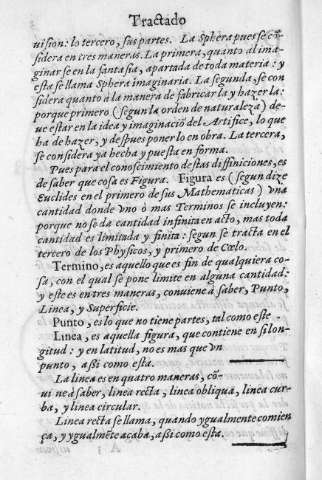 Tractado
uision: lo tercero, sus partes. La Sphera pues se cō-
sidera en tres maneras. La primera, quanto al ima-
ginar se en la fantasia, apartada de toda materia: y
esta se llama Sphera imaginaria. La segunda, se con
sidera quanto à la manera de fabricarla y hazerla:
porque primero (segun la orden de naturaleza) de-
ue estar en la idea y imaginaciō del Artifice, lo que
ha de hazer, y despues poner lo en obra. La tercera,
se considera ya hecha y puesta en forma.
Pues para el conoscimiento destas diffiniciones, es
de saber que cosa es Figura. Figura es (segun dize
Euclides en el primero de sus Mathematicas) vna
cantidad donde vno ò mas Terminos se incluyen:
porque no se da cantidad infinita en acto, mas toda
cantidad es limitada y finita: segun se tracta en el
tercero de los Physicos, y primero de Cœlo.
Termino, es aquello que es fin de qualquiera co-
sa, con el qual se pone limite en alguna cantidad:
y este es en tres maneras, conuiene à saber, Punto,
Linea, y Superficie.
Punto, es lo que no tiene partes, tal como este ·
Linea, es aquella figura, que contiene en si lon-
gitud: y en latitud, no es mas que vn
punto, aßi como esta.
La linea es en quatro maneras, cō-
uiene à saber, linea recta, linea obliqua, linea cur-
ba, y linea circular.
Linea recta se llama, quando ygualmente comien
ça, y ygualmēte acaba, aßi como esta.